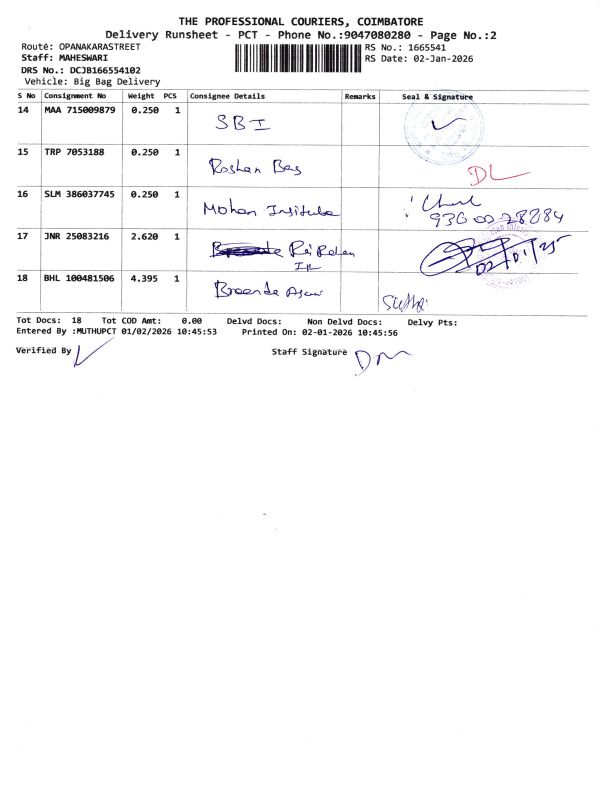 THE PROFESSIONAL COURIERS, COIMBATORE
Delivery Runsheet - PCT - Phone No.:9047080280 - Page No.:2
Route: OPANAKARASTREET
RS No.: 1665541
Staff: MAHESWARI
RS Date: 02-Jan-2026
DRS No.: DCJB166554102
Vehicle: Big Bag Delivery
S No Consignment No Weight PCS Consignee Details Remarks Seal & Signature
14 MAA 715009879 0.250 1 SBI
15 TRP 7053188 0.250 1 Roshan Bag DL
16 SLM 386037745 0.250 1 Mohan
17 JNR 25083216 2.620 1
18 BHL 100481506 4.395 1
Tot Docs: 18 Tot COD Amt: 0.00 Delvd Docs: Non Delvd Docs: Delvy Pts:
Entered By :MUTHUPCT 01/02/2026 10:45:53 Printed On: 02-01-2026 10:45:56
Verified By
Staff Signature